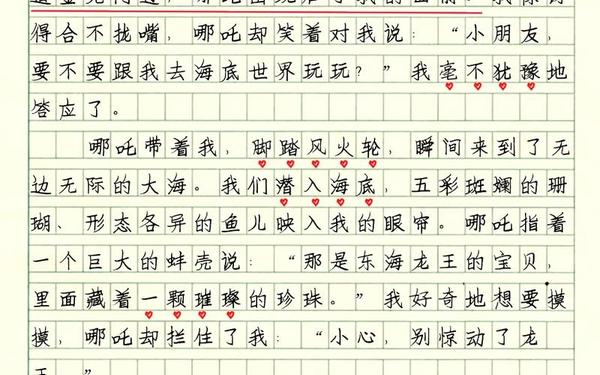 得合不拢嘴，哪吒却笑着对我说：“小朋友，
要不要跟我去海底世界玩玩？”我毫不犹豫地
答应了。
哪吒带着我，脚踏风火轮，瞬间来到了无
边无际的大海。我们潜入海底，五彩斑斓的珊
瑚、形态各异的鱼儿映入我的眼帘。哪吒指着
一个巨大的蚌壳说：“那是东海龙王的宝贝，
里面藏着一颗璀璨的珍珠。”我好奇地想要摸
摸，哪吒却拦住了我：“小心，别惊动了龙